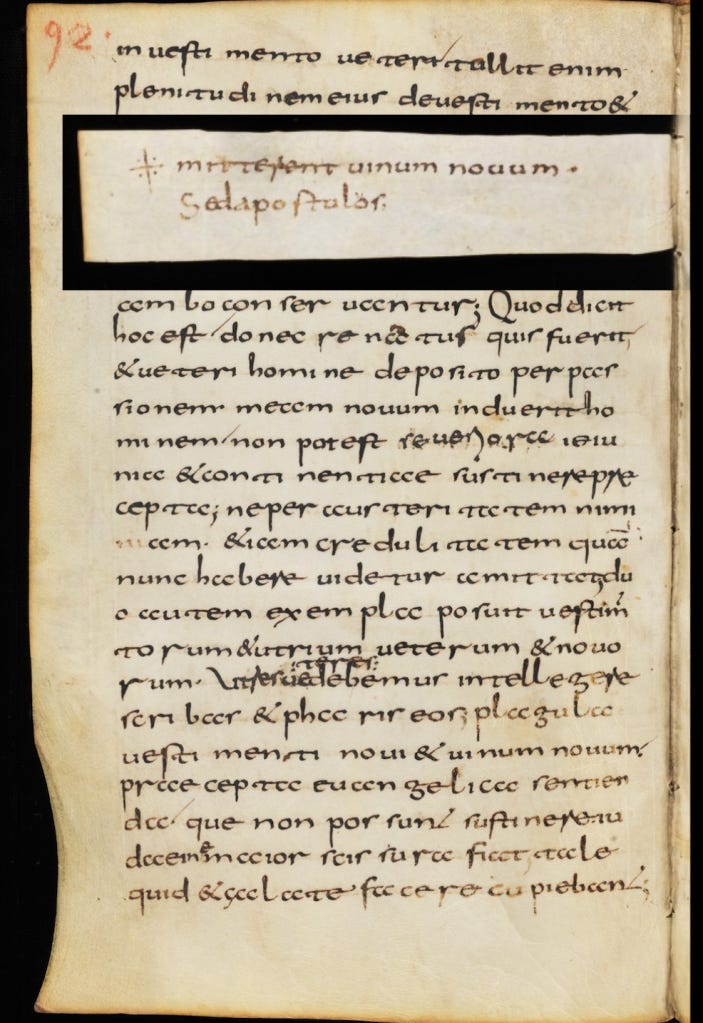 92.
in uesti mento ueteri tollit enim
plenitudinem eius deuestimento &
mitterent uinum nouum.
Sed apostulos;
ambo conseruantur; Quod dicit
hoc est donec renatus quis fuerit,
& ueteri homine deposito per pas
sionem meam nouum induerit ho
minem non potest seueriora ieiu
nia & continentiae sustinere pre
cepta; ne per austeritatem nimi
am. & iam credulitatem quam
nunc habere uidetur amittat; du
o autem exempla posuit uestim̄
torum & utrium ueterum & nouo
rum. Veteres debemus intellegere
scribas & phariseos; plagulae
uestimenti noui & uinum nouum.
praecepta euangelica sentien
da. que non possunt sustinere iu
daem maior scissura fiat tale
quid & galatae facere cupieban̄;